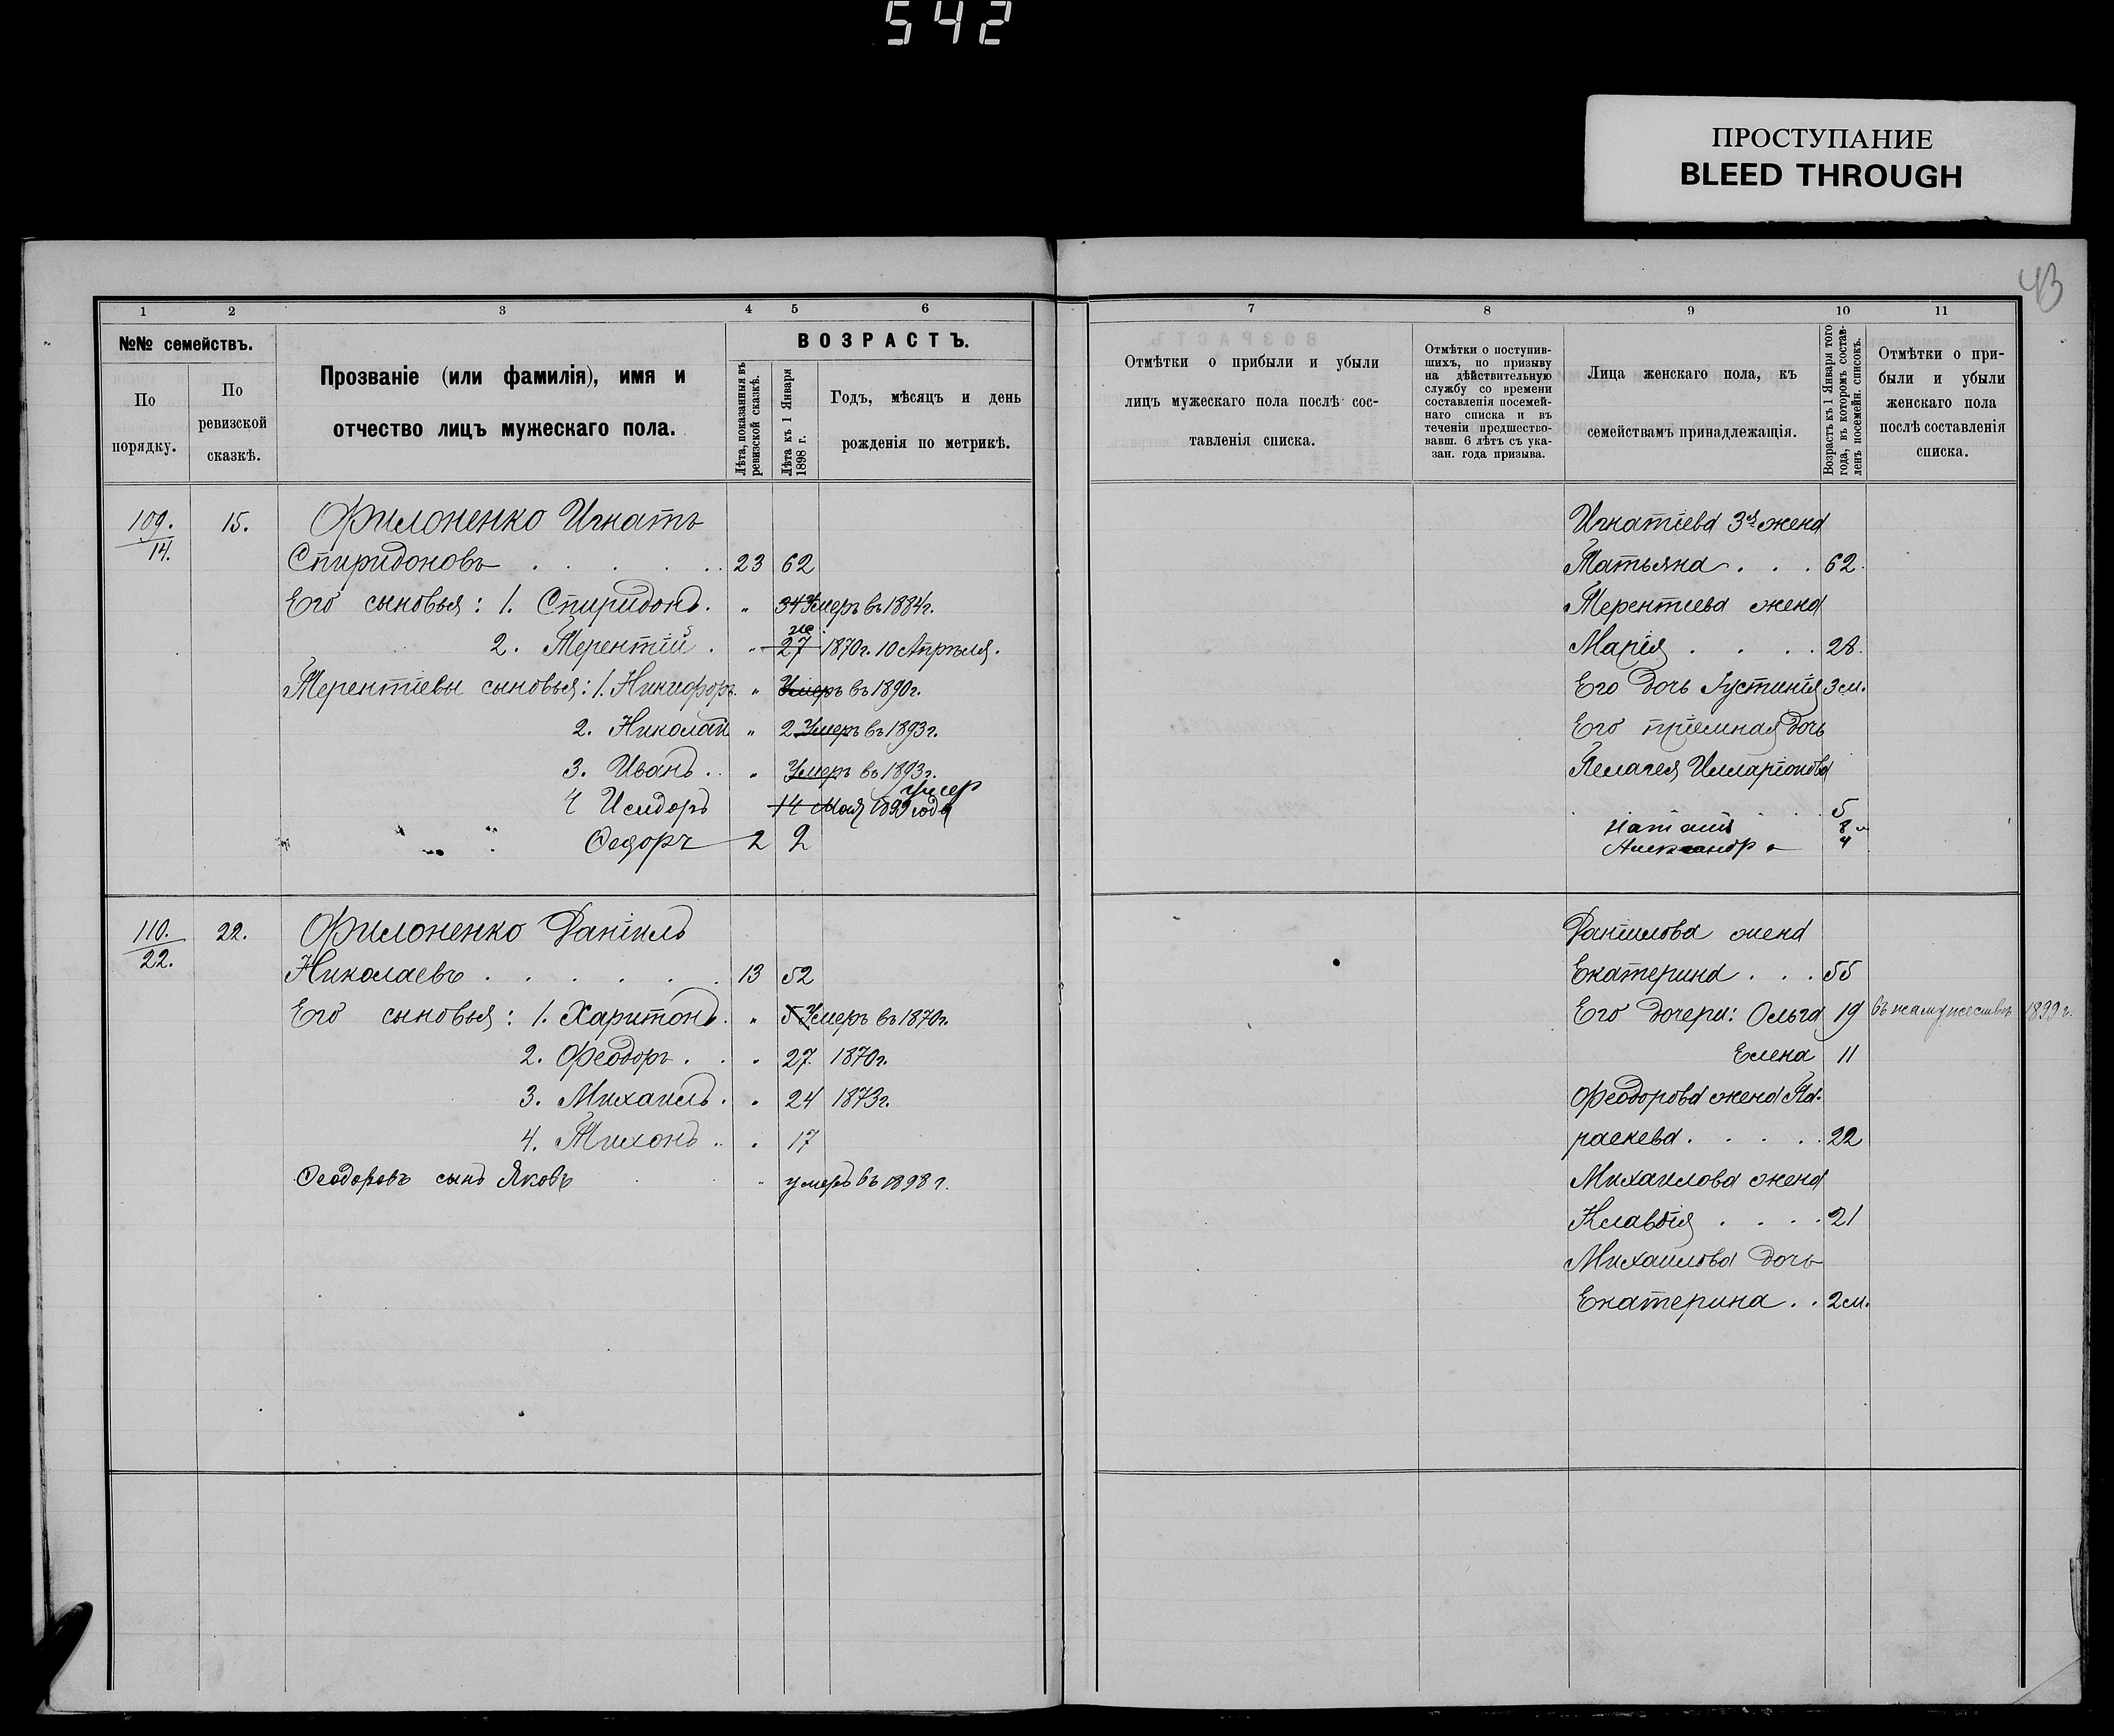 542
ПРОСТУПАНИЕ
BLEED THROUGH
43
1 2 3 4 5 6
№№ семействъ.
По порядку.
По ревизской сказкѣ.
Прозваніе (или фамилія), имя и
отчество лицъ мужескаго пола.
ВОЗРАСТЪ.
Лѣта, показанныя въ ревизской сказкѣ.
Лѣта къ 1 Января 1898 г.
Годъ, мѣсяцъ и день
рожденія по метрикѣ.
109. 15. Филоненко Игнатъ
14. Спиридоновъ . . . . . 23 62
Его сыновья: 1. Спиридонъ. " 34 Умеръ въ 1884г.
2. Терентій . " 27 1870г. 10 Апрѣля.
Терентіевы сыновья: 1. Никифоръ " Умеръ въ 1890г.
2. Николай " 2 Умеръ въ 1893г.
3. Иванъ . . " Умеръ въ 1893г.
умер
4 Исидоръ 14 Мая 1899 года
" " Федоръ 2 2
110. 22. Филоненко Даніилъ
22. Николаевъ . . . . . . 13 52
Его сыновья: 1. Харитонъ. " 5 Умеръ въ 1870г.
2. Феодоръ . . " 27. 1870г.
3. Михаилъ. . " 24 1873г.
4. Тихонъ .. " 17
Феодоровъ сынъ Яковъ " умеръ въ 1898 г.
7 8 9 10 11
Отмѣтки о прибыли и убыли
лицъ мужескаго пола послѣ сос-
тавленія списка.
Отмѣтки о поступив-
шихъ, по призыву
на дѣйствительную
службу со времени
составленія посемей-
наго списка и въ
теченіи предшество-
вавш. 6 лѣтъ съ ука-
зан. года призыва.
Лица женскаго пола, къ
семействамъ принадлежащія.
Возрастъ къ 1 Января того
года, въ которомъ состав-
ленъ посемейн. списокъ.
Отмѣтки о при-
были и убыли
женскаго пола
послѣ составленія
списка.
Игнатіева 3я жена
Татьяна . . . 62.
Терентіева жена
Марія . . . . 28.
Его дочь Іустинія 3 м.
Его пріемная дочь
Пелагея Илларіонова
5
Наталія 8
Александра 4
Даніилова жена
Екатерина . . . 55
Его дочери: Ольга 19 въ замужествѣ 1899 г.
Елена 11
Феодорова жена Па-
раскева . . . . . 22
Михаилова жена
Клавдія . . . . 21
Михаилова дочь
Екатерина . . 2 м.